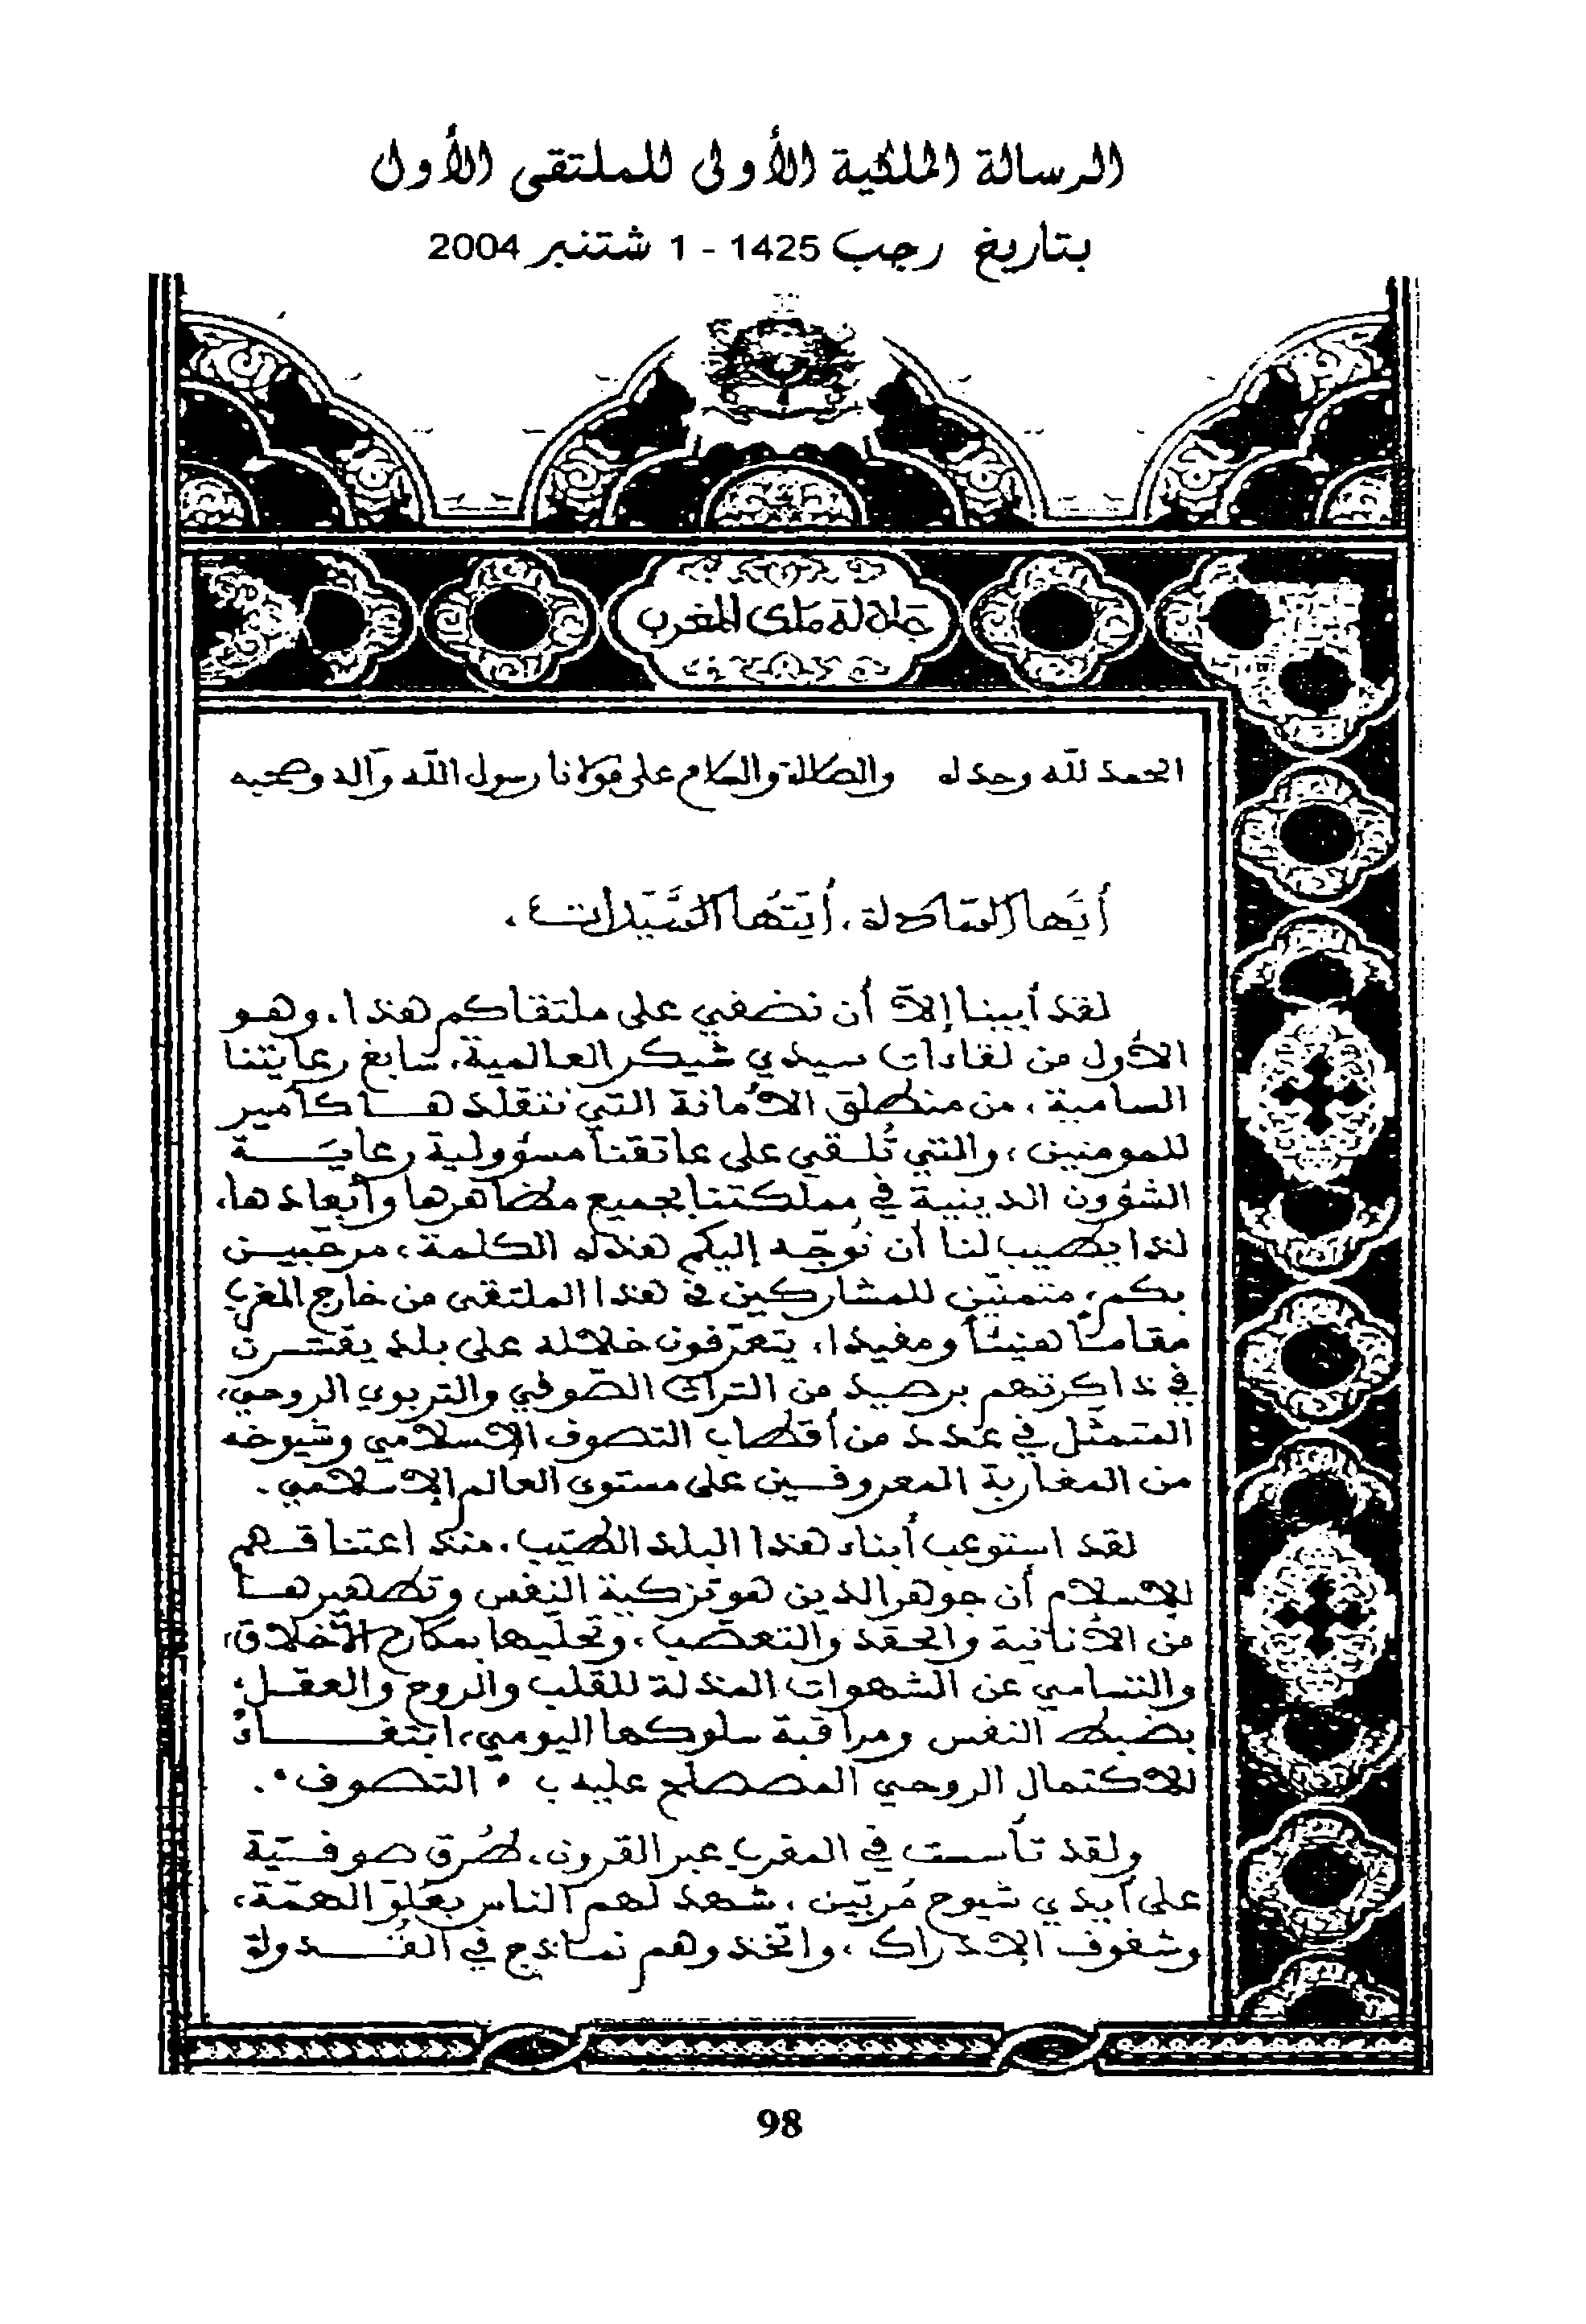 الرسالة الملكية الأولى للملتقى الأول
بتاريخ رجب 1425 - 1 شتنبر 2004
جلالة ملك المغرب
الحمد لله وحده والصلاة والسلام على مولانا رسول الله وآله وصحبه
أيها السادة، أيتها السيدات،
لقد أبينا إلا أن نضفي على ملتقاكم هذا، وهو
الأول من لقاءات سيدي شيكر العالمية، سابغ رعايتنا
السامية، من منطلق الأمانة التي نتقلدها كأمير
للمومنين، والتي تلقي على عاتقنا مسؤولية رعاية
الشؤون الدينية في مملكتنا بجميع مظاهرها وأبعادها،
لذا يطيب لنا أن نوجه إليكم هذه الكلمة، مرحبين
بكم، متمنين للمشاركين في هذا الملتقى من خارج المغرب
مقاما هنيئا ومفيدا، يتعرفون خلاله على بلد يقترن
في ذاكرتهم برصيد من التراث الصوفي والتربوي الروحي،
المتمثل في عدد من أقطاب التصوف الإسلامي وشيوخه
من المغاربة المعروفين على مستوى العالم الإسلامي.
لقد استوعب أبناء هذا البلد الطيب، منذ اعتناقهم
للإسلام أن جوهر الدين هو تزكية النفس وتطهيرها
من الأنانية والحقد والتعصب، وتحليها بمكارم الأخلاق،
والتسامي عن الشهوات المذلة للقلب والروح والعقل،
بضبط النفس ومراقبة سلوكها اليومي، ابتغاء
للاكتمال الروحي المصطلح عليه ب "التصوف".
ولقد تأسست في المغرب عبر القرون، طرق صوفية
على أيدي شيوخ مربين، شهد لهم الناس بعلو الهمة،
وشفوف الإدراك، واتخذوهم نماذج في القدوة
98